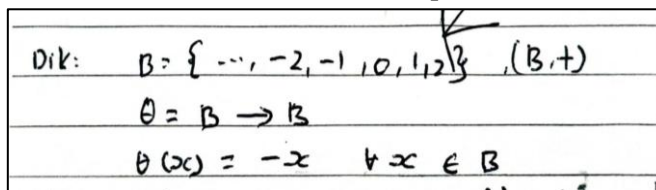 Dik: B = { ..., -2, -1, 0, 1, 2 } , (B, +)
θ = B → B
θ(x) = -x ∀ x ∈ B